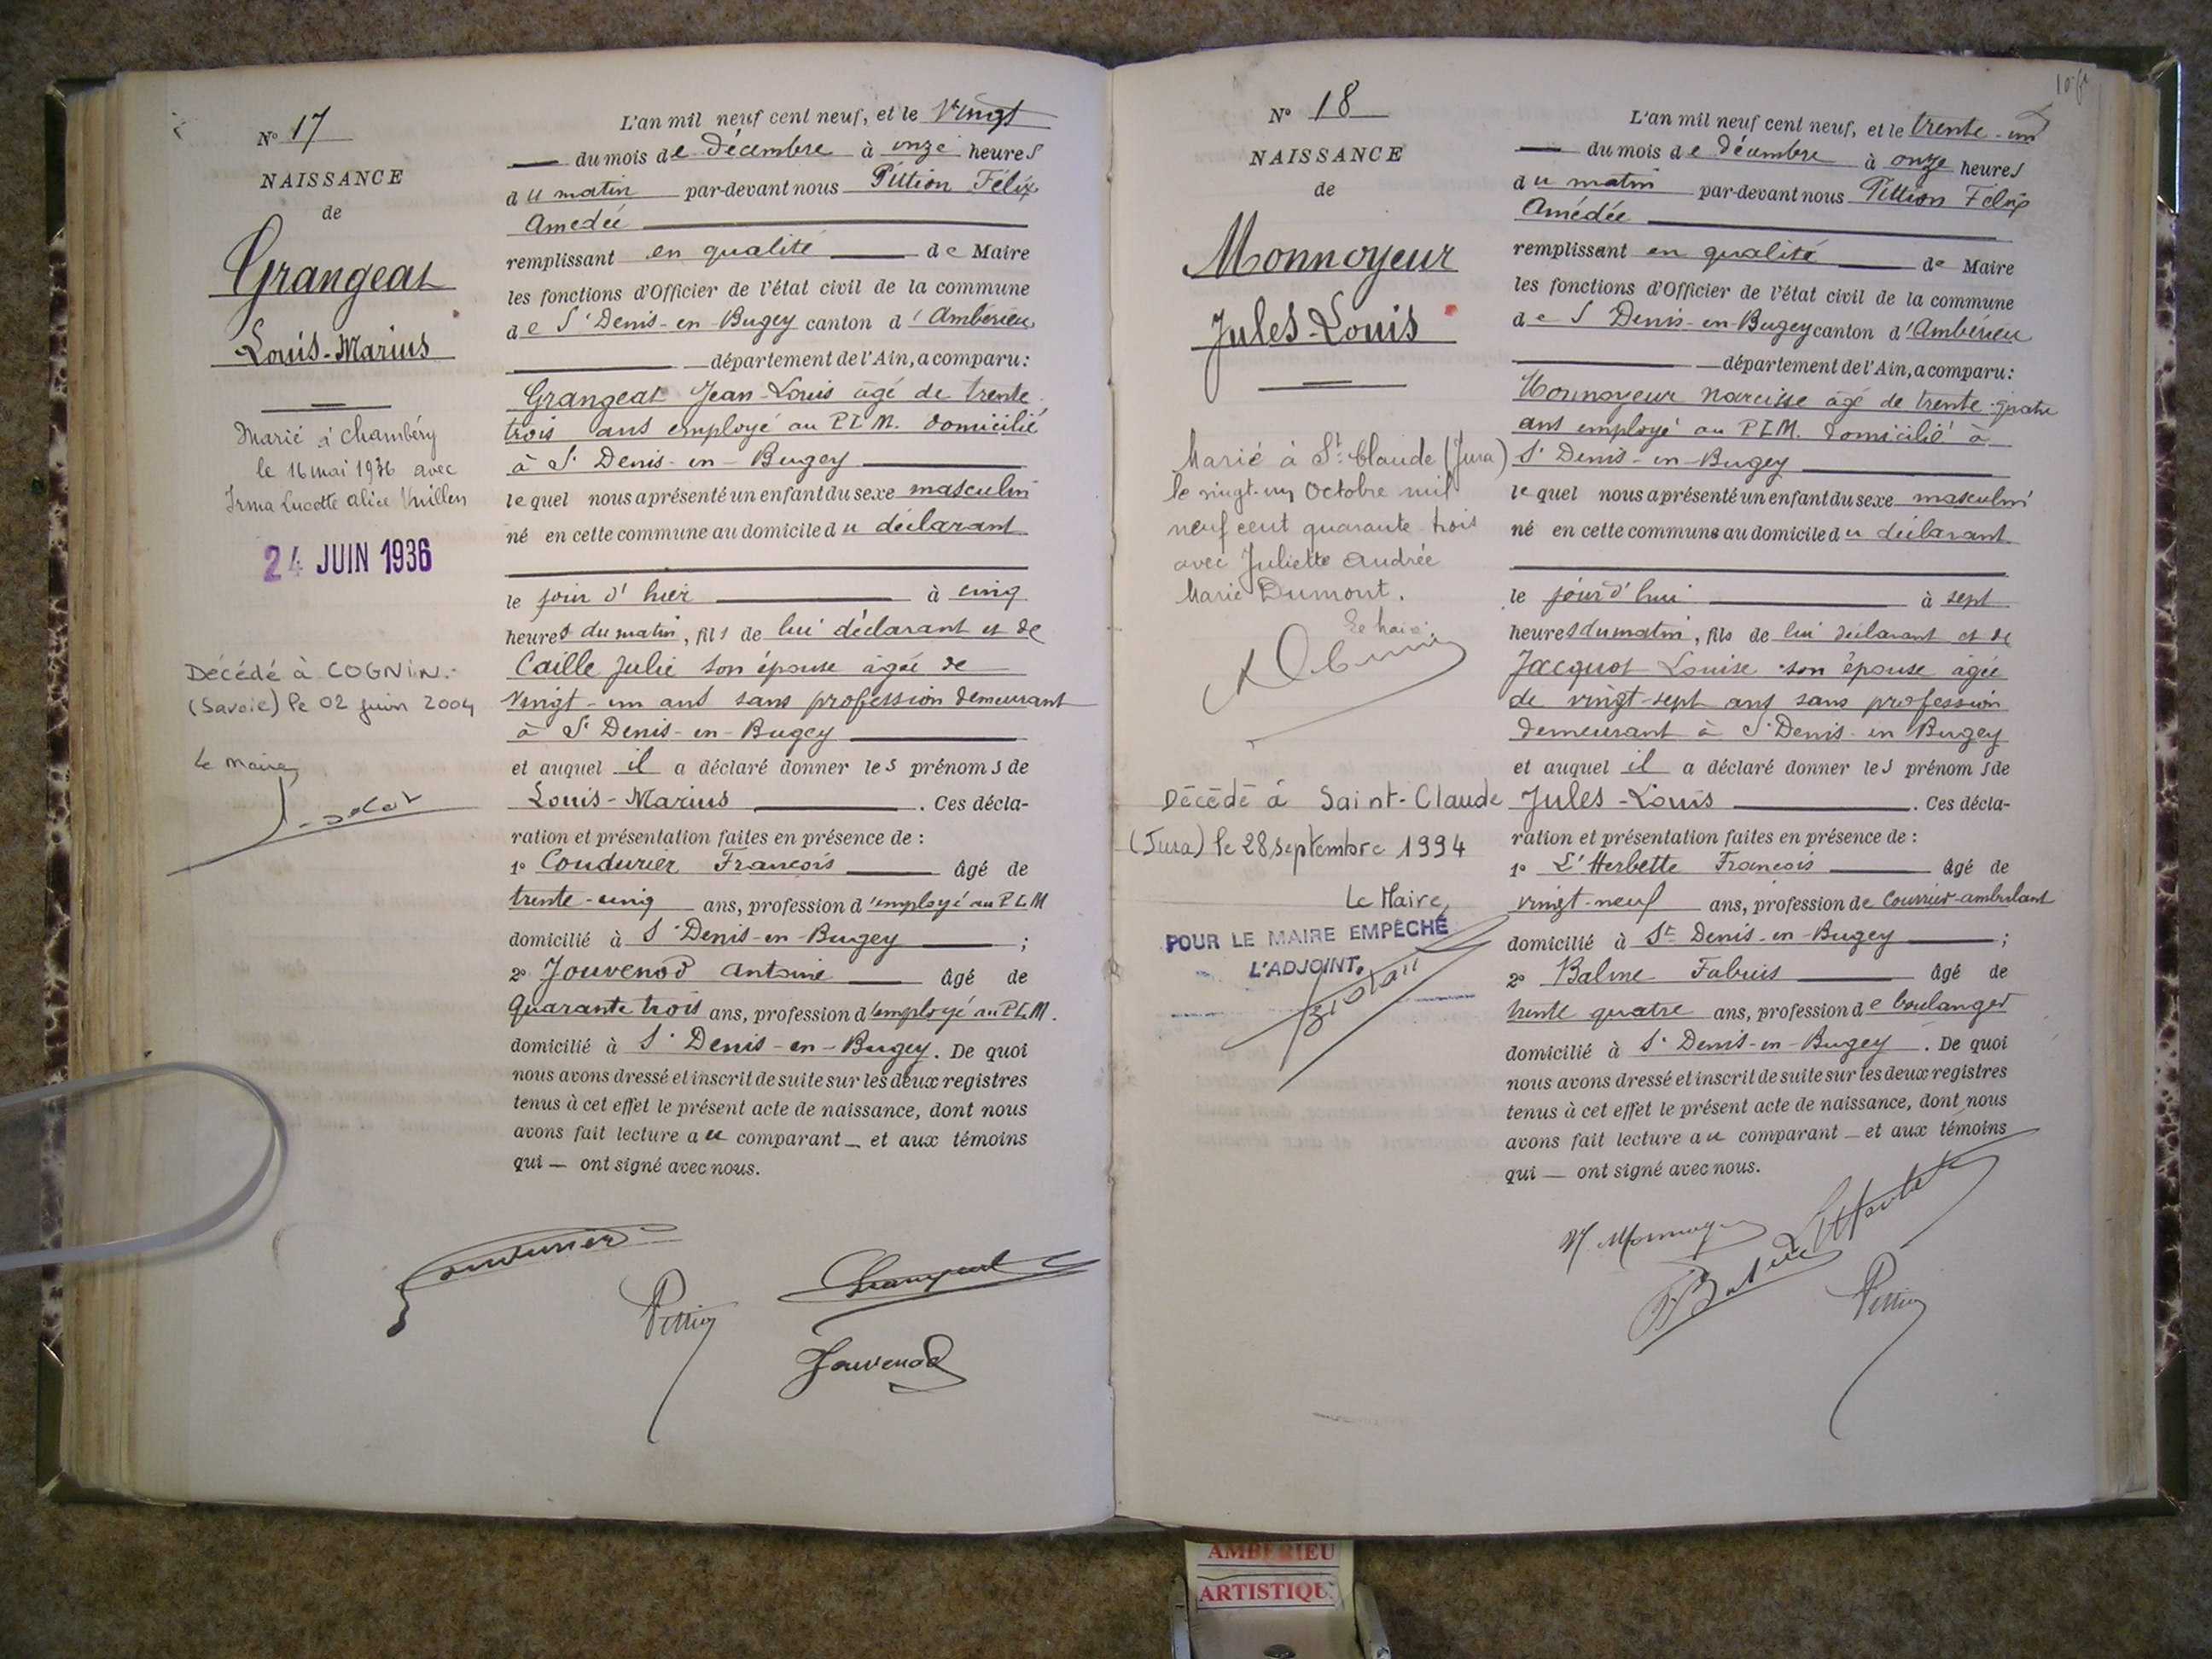 N° 17
NAISSANCE
de
Grangeat
Louis-Marius
Marié à Chambéry
le 16 mai 1936 avec
Irma Lucette Alice
24 JUIN 1936
Décédé à COGNIN.
(Savoie) le 02 juin 2004
Le Maire,
L'an mil neuf cent neuf, et le Vingt
du mois de Décembre à onze heures
du matin par-devant nous Pittion Félix
Amedée
remplissant en qualité de Maire
les fonctions d'Officier de l'état civil de la commune
de St Denis-en-Bugey canton d'Ambérieu
département de l'Ain, a comparu:
Grangeat Jean-Louis âgé de trente
trois ans employé au P.L.M. domicilié
à St Denis-en-Bugey
lequel nous a présenté un enfant du sexe masculin
né en cette commune au domicile du déclarant
le jour d'hier à cinq
heures du matin, fils de lui déclarant et de
Caille Julie son épouse âgée de
vingt-un ans sans profession demeurant
à St Denis-en-Bugey
et auquel il a déclaré donner les prénoms de
Louis-Marius . Ces décla-
ration et présentation faites en présence de :
1° Coudurier François âgé de
trente-cinq ans, profession d'employé au PLM
domicilié à St Denis-en-Bugey ;
2° Jouvenod Antoine âgé de
quarante trois ans, profession d'employé au P.L.M.
domicilié à St Denis-en-Bugey. De quoi
nous avons dressé et inscrit de suite sur les deux registres
tenus à cet effet le présent acte de naissance, dont nous
avons fait lecture au comparant et aux témoins
qui ont signé avec nous.
Coudurier
Pittion
Grangeat
Jouvenod
N° 18
NAISSANCE
de
Monnoyeur
Jules-Louis
Marié à St Claude (Jura)
le vingt-un Octobre mil
neuf cent quarante trois
avec Juliette Andrée
Marie Dumont.
Le Maire
Décédé à Saint-Claude
(Jura) le 28 septembre 1994
Le Maire,
POUR LE MAIRE EMPÊCHÉ
L'ADJOINT.
L'an mil neuf cent neuf, et le trente-un
du mois de Décembre à onze heures
du matin par-devant nous Pittion Félix
Amédée
remplissant en qualité de Maire
les fonctions d'Officier de l'état civil de la commune
de St Denis-en-Bugey canton d'Ambérieu
département de l'Ain, a comparu:
Monnoyeur Narcisse âgé de trente-quatre
ans employé au P.L.M. domicilié à
St Denis-en-Bugey
lequel nous a présenté un enfant du sexe masculin
né en cette commune au domicile du déclarant
le jour d'hui à sept
heures du matin, fils de lui déclarant et de
Jacquot Louise son épouse âgée
de vingt-sept ans sans profession
demeurant à St Denis-en Bugey
et auquel il a déclaré donner les prénoms de
Jules-Louis . Ces décla-
ration et présentation faites en présence de :
1° L'Herbette François âgé de
vingt-neuf ans, profession de Courrier-ambulant
domicilié à St Denis-en-Bugey ;
2° Balme Fabrics âgé de
trente quatre ans, profession de boulanger
domicilié à St Denis-en-Bugey . De quoi
nous avons dressé et inscrit de suite sur les deux registres
tenus à cet effet le présent acte de naissance, dont nous
avons fait lecture au comparant et aux témoins
qui ont signé avec nous.
Pittion
AMBERIEU
ARTISTIQUE